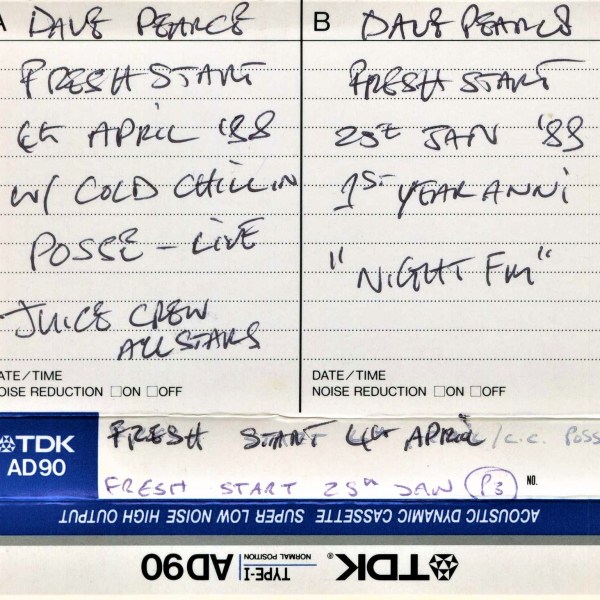 A DAVE PEARCE
FRESH START
4th APRIL '88
W/ COLD CHILLIN
POSSE – LIVE
JUICE CREW
ALLSTARS
DATE/TIME
NOISE REDUCTION □ON □OFF
B DAVE PEARCE
FRESH START
25th JAN '88
1ST YEAR ANNI
"NIGHT FM"
DATE/TIME
NOISE REDUCTION □ON □OFF
TDK
AD90
FRESH START 4th APRIL / C.C. POSS
FRESH START 25th JAN P3
NO.
ACOUSTIC DYNAMIC CASSETTE SUPER LOW NOISE HIGH OUTPUT
TDK® TYPE-I NORMAL POSITION AD90